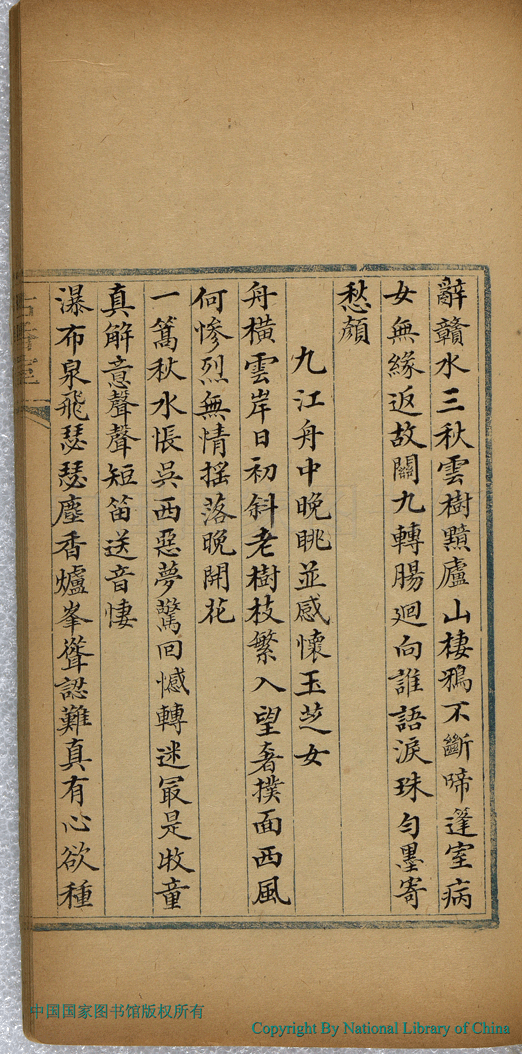 辭贛水三秋雲樹黯廬山棲鴉不斷啼蓬室病
女無緣返故關九轉腸迴向誰語淚珠勻墨寄
愁顏
九江舟中晚眺並感懷玉芝女
舟橫雲岸日初斜老樹枝繁入望奢撲面西風
何慘烈無情搖落晚開花
一篙秋水悵吳西惡夢驚回憾轉迷冣是牧童
真解意聲聲短笛送音悽
瀑布泉飛瑟瑟塵香爐峯聳認難真有心欲種
中国国家图书馆版权所有
Copyright By National Library of China